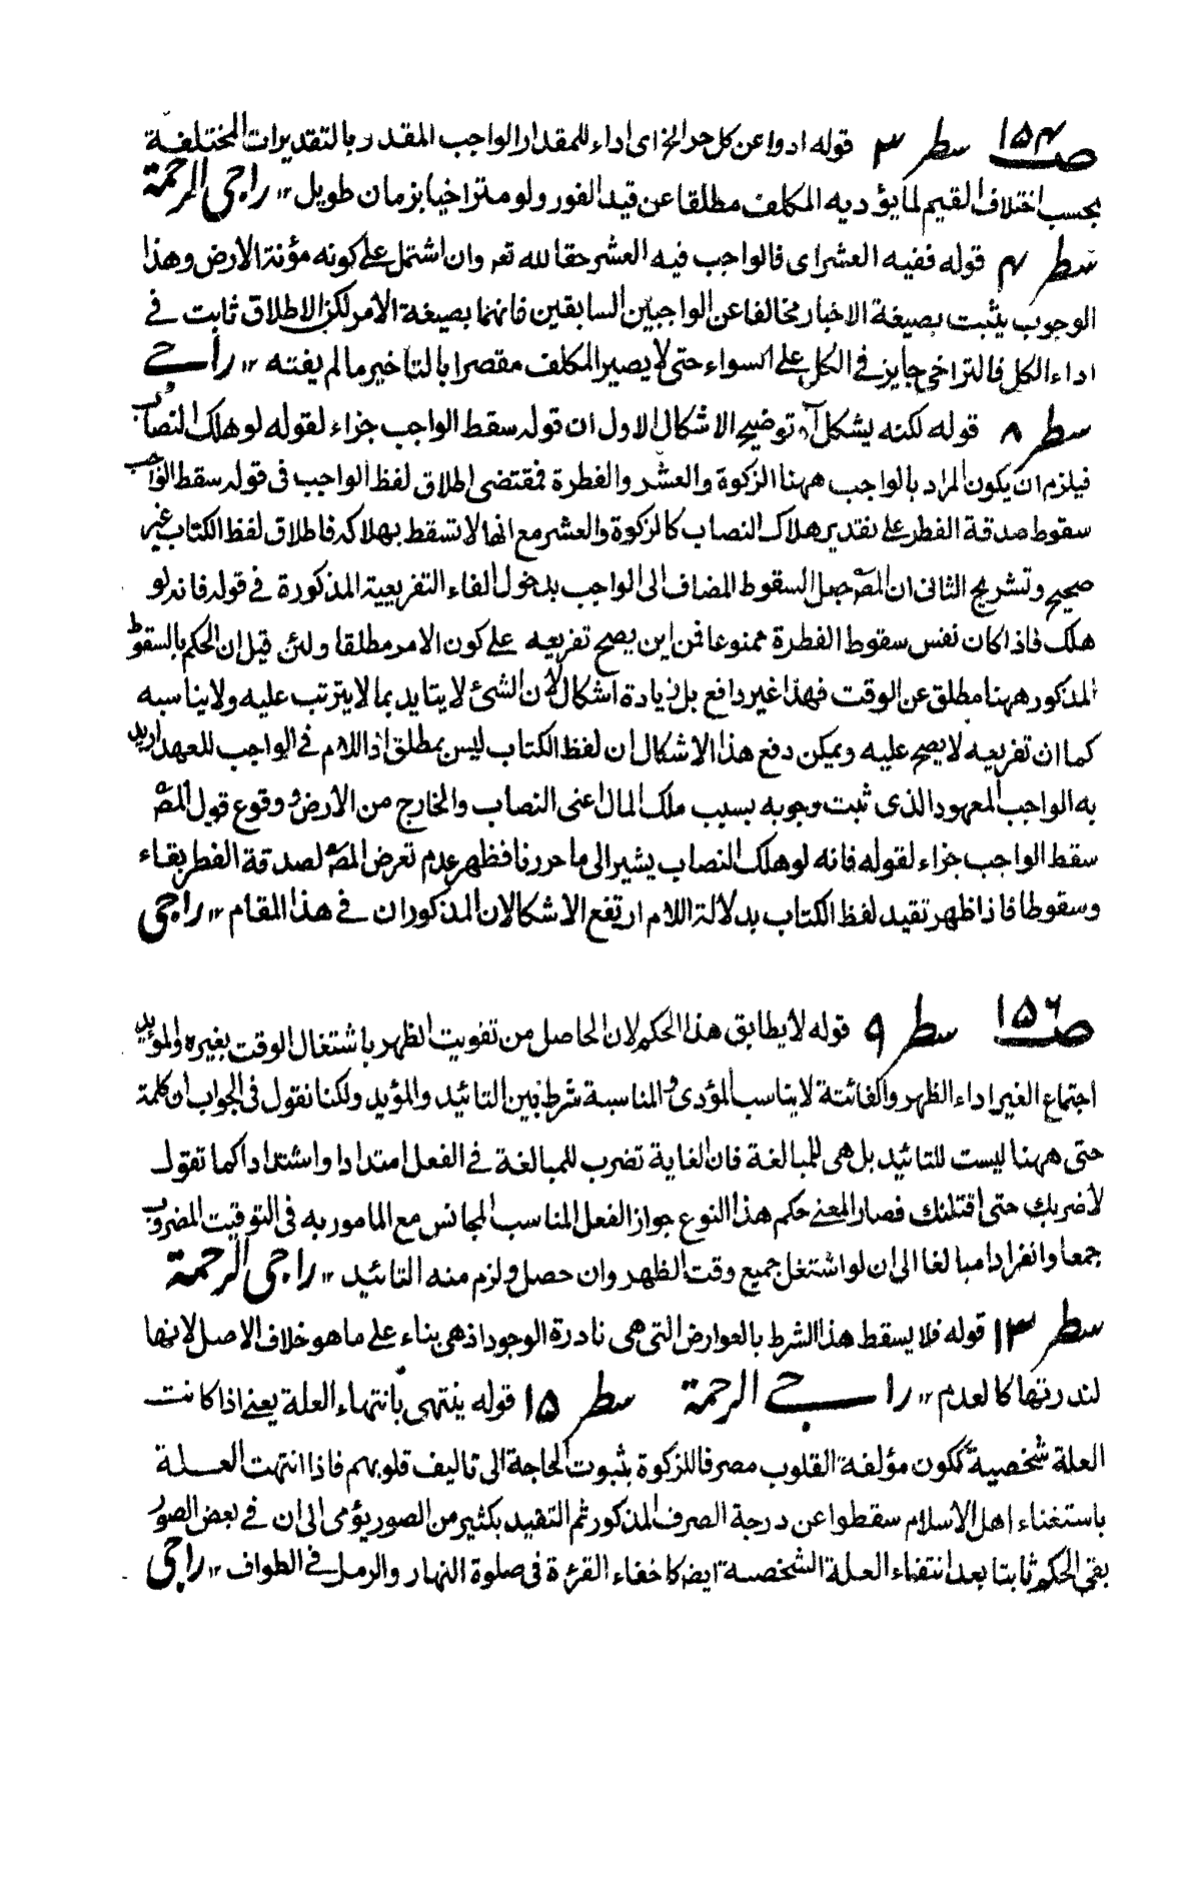 صـ ۱۵۴ سطر ۳ قوله ادوا عن كل حر الخ اى اداء للمقدار الواجب المقدر بالتقديرات المختلفة
بحسب اختلاف القيم لما يؤديه المكلف مطلقا عن قيد الفور ولو متراخيا بزمان طويل ۱۲ راجى الرحمة
سطر ۴ قوله ففيه العشر اى فالواجب فيه العشر حقا لله تعـ وان اشتمل على كونه مؤنة الارض وهذا
الوجوب يثبت بصيغة الاخبار مخالفا عن الواجبين السابقين فانهما بصيغة الامر لكن الاطلاق ثابت فى
اداء الكل فالتراخى جايز فى الكل على السواء حتى لا يصير المكلف مقصرا بالتاخير مالم يفته ۱۲ راجے
سطر ۸ قوله لكنه يشكل آه توضيح الاشكال الاول ان قوله سقط الواجب جزاء لقوله لو هلك النصاب
فيلزم ان يكون المراد بالواجب ههنا الزكوة والعشر والفطرة فمقتضى اطلاق لفظ الواجب فى قوله سقط الواجب
سقوط صدقة الفطر على تقدير هلاك النصاب كالزكوة والعشر مع انها لا تسقط بهلاكه فاطلاق لفظ الكتاب غير
صحيح وتشريح الثانى ان المصـ جعل السقوط المضاف الى الواجب بدخول الفاء التفريعية المذكورة فى قوله فانه لو
هلك فاذا كان نفس سقوط الفطرة ممنوعا فمن اين يصح تفريعه على كون الامر مطلقا ولئن قيل ان الحكم بالسقوط
المذكور ههنا مطلق عن الوقت فهذا غير دافع بل زيادة اشكال لان الشئ لا يتايد بما لا يترتب عليه ولا يناسبه
كما ان تفريعه لا يصح عليه ويمكن دفع هذا الاشكال ان لفظ الكتاب ليس بمطلق اذ اللام فى الواجب للعهد اريد
به الواجب المعهود الذى ثبت وجوبه بسبب ملك المال اعنى النصاب والخارج من الارض و وقوع قول المصـ
سقط الواجب جزاء لقوله فانه لو هلك النصاب يشير الى ما حررنا فظهر عدم تعرض المصـ لصدقة الفطر بقاء
وسقوطا فاذا ظهر تقيد لفظ الكتاب بدلالة اللام ارتفع الاشكالان المذكوران فى هذا المقام ۱۲ راجى
صـ ۱۵۶ سطر ۹ قوله لا يطابق هذا الحكم لان الحاصل من تفويت الظهر باشتغال الوقت بغيره والمؤيد
اجتماع الغير اداء الظهر والفائتة لا يناسب المؤدى و المناسبة شرط بين التائيد والمؤيد ولكنا نقول فى الجواب ان كلمة
حتى ههنا ليست للتائيد بل هى للمبالغة فان الغاية تضرب للمبالغة فى الفعل امتدادا واشتدادا كما تقول
لاضربك حتى اقتلنك فصار المعنے حكم هذا النوع جواز الفعل المناسب المجانس مع المامور به فى التوقيت المضروب
جمعا وانفرادا مبالغا الى ان لو اشتغل جميع وقت الظهر وان حصل و لزم منه التائيد ۱۲ راجى الرحمة
سطر ۱۳ قوله فلا يسقط هذا الشرط بالعوارض التى هى نادرة الوجود اذ هى بناء على ما هو خلاف الاصل لانها
لندرتها كالعدم ۱۲ راجے الرحمة سطر ۱۵ قوله ينتهى بانتهاء العلة يعنے اذا كانت
العلة شخصية ككون مؤلفة القلوب مصرفا للزكوة بثبوت الحاجة الى تاليف قلوبهم فاذا انتهت العلة
باستغناء اهل الاسلام سقطوا عن درجة الصرف المذكور ثم التقييد بكثير من الصور يؤمى الى ان فى بعض الصور
بقى الحكم ثابتا بعد انتفاء العلة الشخصية ايضا كاخفاء القرءة فى صلوة النهار والرمل فى الطواف ۱۲ راجى